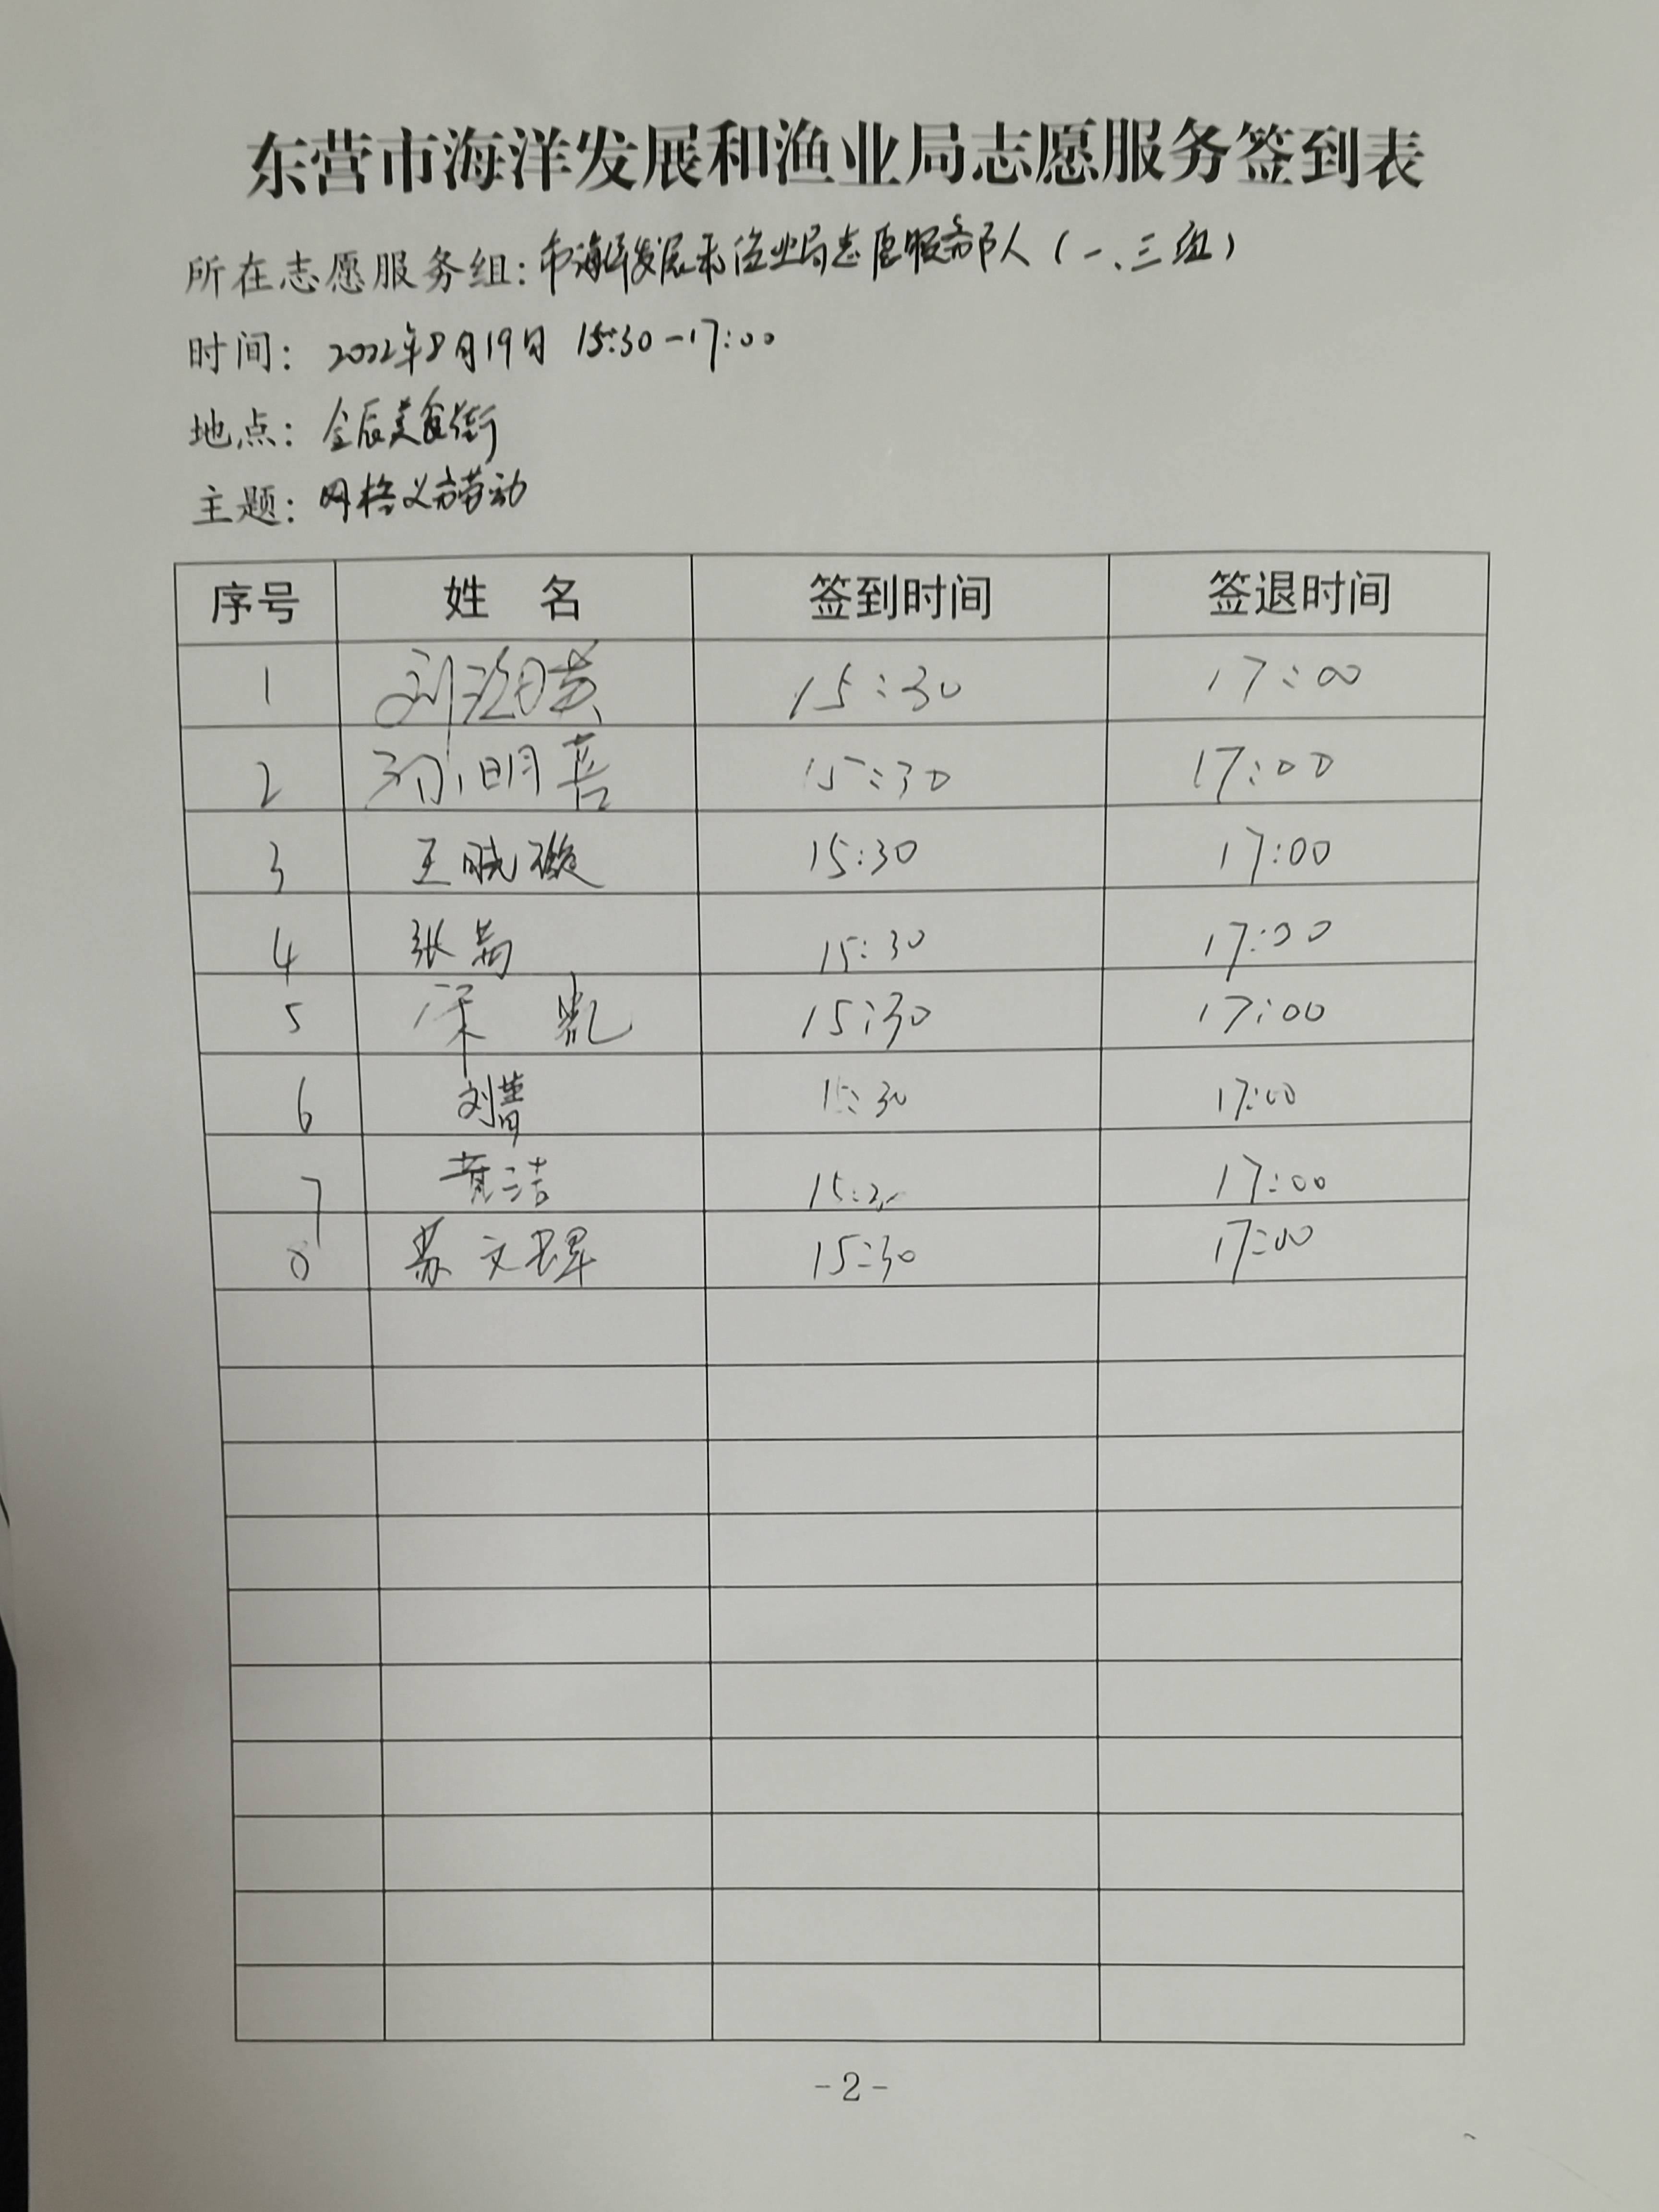 东营市海洋发展和渔业局志愿服务签到表
所在志愿服务组：市海洋发展和渔业局志愿服务部队（一、三组）
时间： 2022年8月19日 15:30-17:00
地点： 金辰美食街
主题： 网格义务劳动
序号 姓 名 签到时间 签退时间
1 15:30 17:00
2 15:30 17:00
3 王晓璇 15:30 17:00
4 张茜 15:30 17:00
5 宋凯 15:30 17:00
6 刘菁 15:30 17:00
7 黄洁 17:00
8 苏文 15:30 17:00
-2-